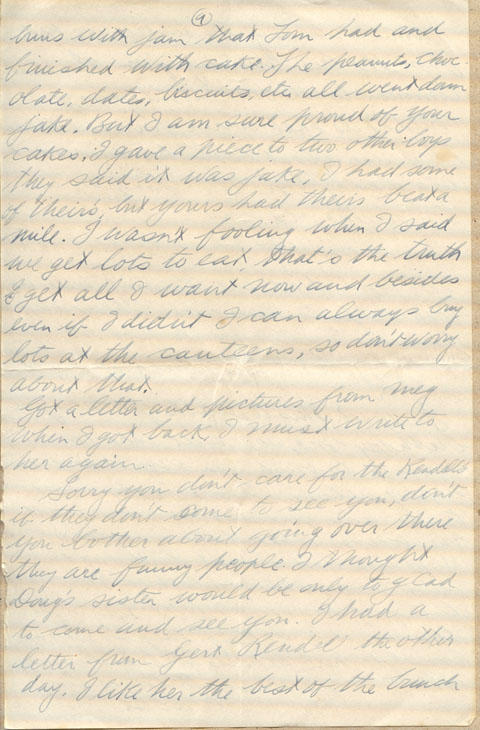 9
buns with jam that Tom had and
finished with cake. The peanuts, choc-
olate, dates, biscuits, etc all went down
jake. But I am sure proud of your
cakes, I gave a piece to two other boys
they said it was jake, I had some
of theirs, but yours had theirs beat a
mile. I wasn't fooling when I said
we get lots to eat, that's the truth
I get all I want now and besides
even if I didn't I can always buy
lots at the canteens, so don't worry
about that.
Got a letter and pictures from Meg
when I got back, I must write to
her again.
Sorry you don't care for the Rendell's
if they don't come to see you, don't
you bother about going over there
they are funny people. I thought
Dougs sister would be only to glad
to come and see you. I had a
letter from Gert Rendell the other
day. I like her the best of the bunch